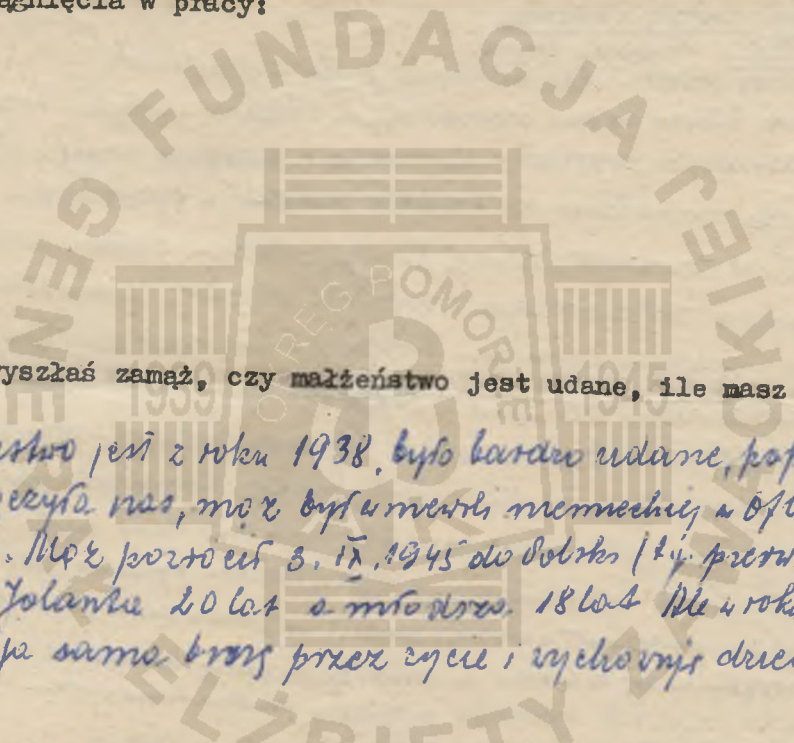 ągnięcia w pracy:
FUNDACJA
GENERAŁ ELŻBIETY ZAWACKIEJ
OKRĘG POMORZE
1939 1945
AK
yszłaś zamąż, czy małżeństwo jest udane, ile masz
ństwo jest z roku 1938, było bardzo udane,
nas, mąż był w niewoli niemieckiej w Ofl
. Mąż powrócił 3. IX. 1945 do Polski (tj.
Jolanta 20 lat a młodsza 18 lat Ale w roku
ja sama brnę przez życie i wychowuję dziec